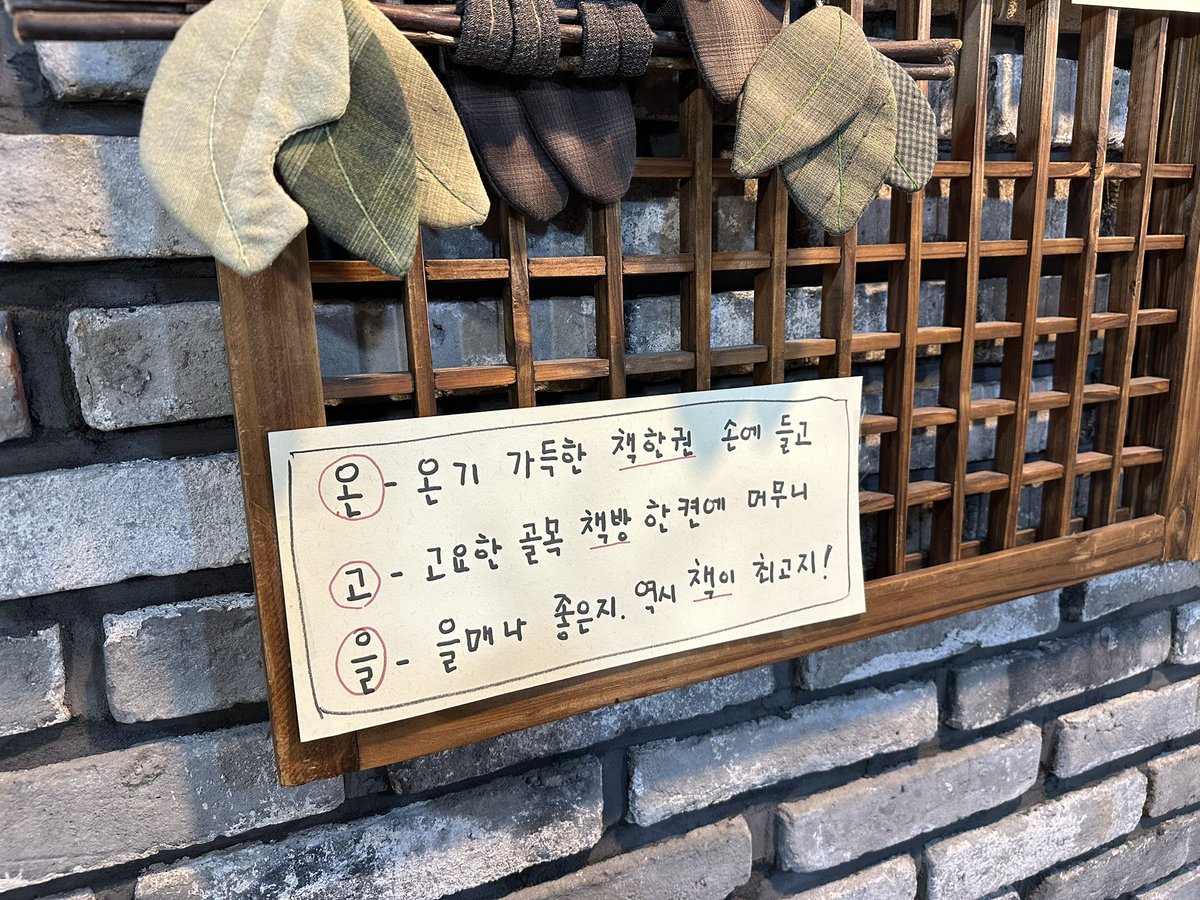 온 - 온기 가득한 책한권 손에 들고
고 - 고요한 골목 책방 한켠에 머무니
을 - 을매나 좋은지. 역시 책이 최고지!